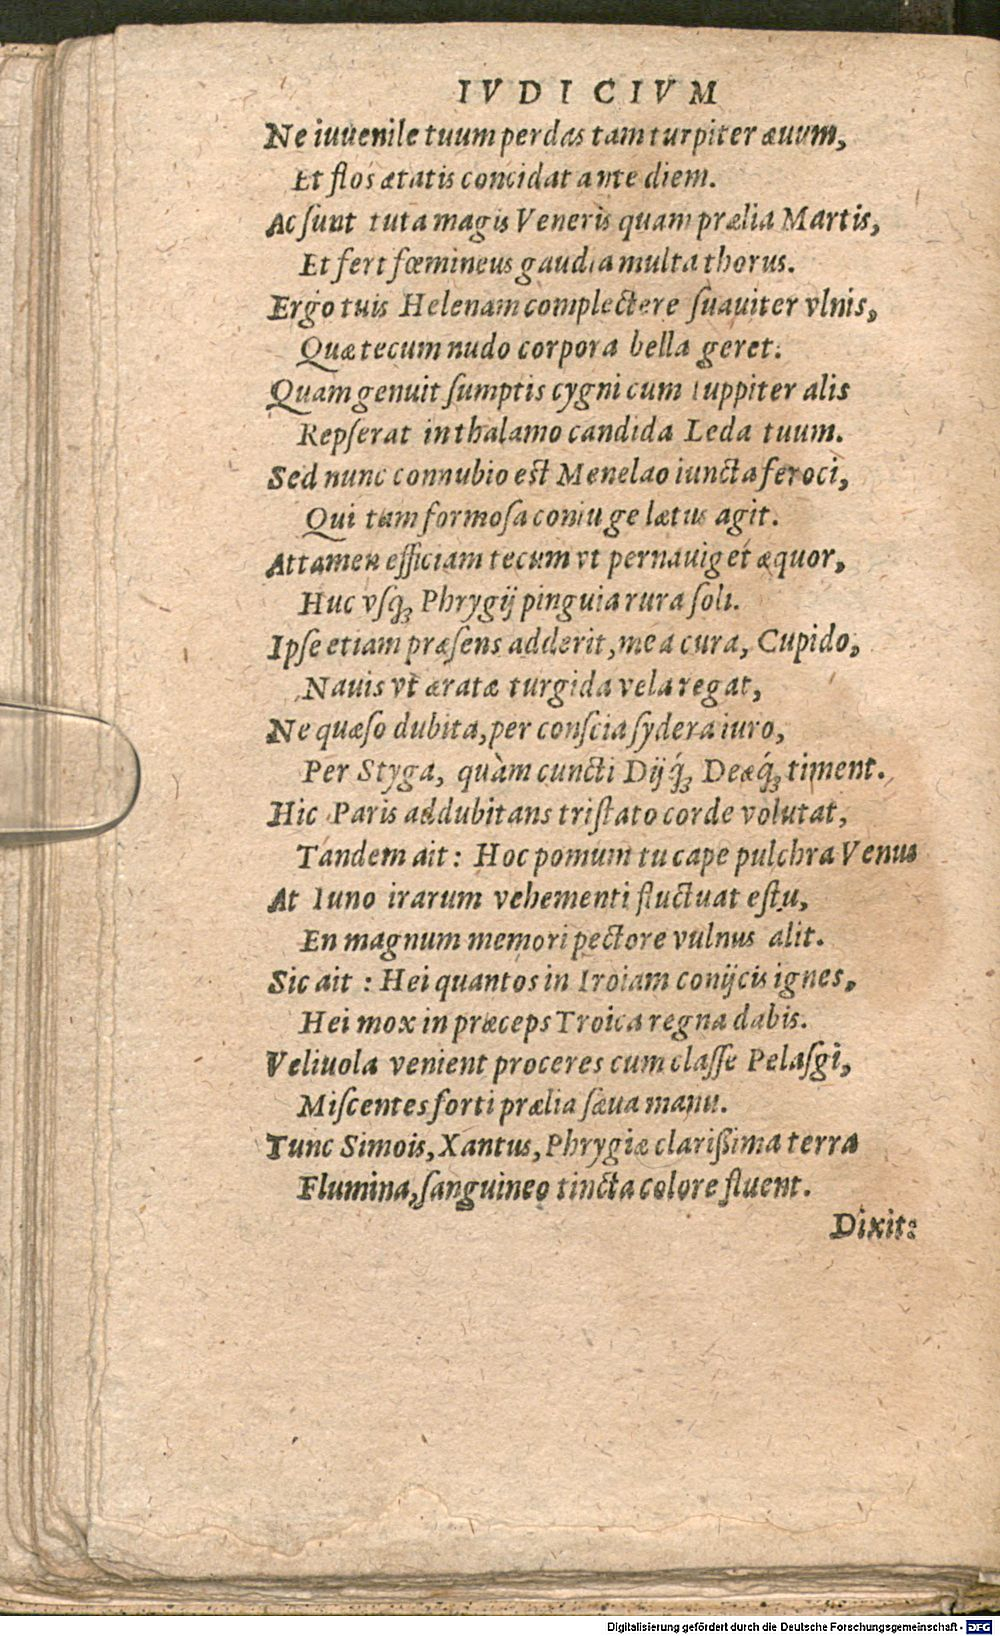 IVDICIVM
Ne iuuenile tuum perdas tam turpiter æuum,
Et flos ætatis concidat ante diem.
Ac ſunt tuta magis Veneris quam prælia Martis,
Et fert fœmineus gaudia multa thorus.
Ergo tuis Helenam complectere ſuauiter vlnis,
Quæ tecum nudo corpora bella geret.
Quam genuit ſumptis cygni cum Iuppiter alis
Repſerat in thalamo candida Leda tuum.
Sed nunc connubio est Menelao iuncta feroci,
Qui tam formoſa coniuge lætus agit.
Attamen efficiam tecum vt pernauiget æquor,
Huc vſq́ꝫ Phrygij pinguia rura ſoli.
Ipſe etiam præſens adderit, mea cura, Cupido,
Nauis vt æratæ turgida vela regat,
Ne quæſo dubita, per conſcia ſydera iuro,
Per Styga, quàm cuncti Dijq́ꝫ Deæq́ꝫ timent.
Hic Paris addubitans triſtato corde volutat,
Tandem ait: Hoc pomum tu cape pulchra Venus
At Iuno irarum vehementi fluctuat eſtu,
En magnum memori pectore vulnus alit.
Sic ait: Hei quantos in Troiam conijcis ignes,
Hei mox in præceps Troica regna dabis.
Veliuola venient proceres cum claſſe Pelaſgi,
Miſcentes forti prælia ſæua manu.
Tunc Simois, Xantus, Phrygiæ clariſſima terra
Flumina, ſanguineo tincta colore fluent.
Dixit:
Digitalisierung gefördert durch die Deutsche Forschungsgemeinschaft - DFG